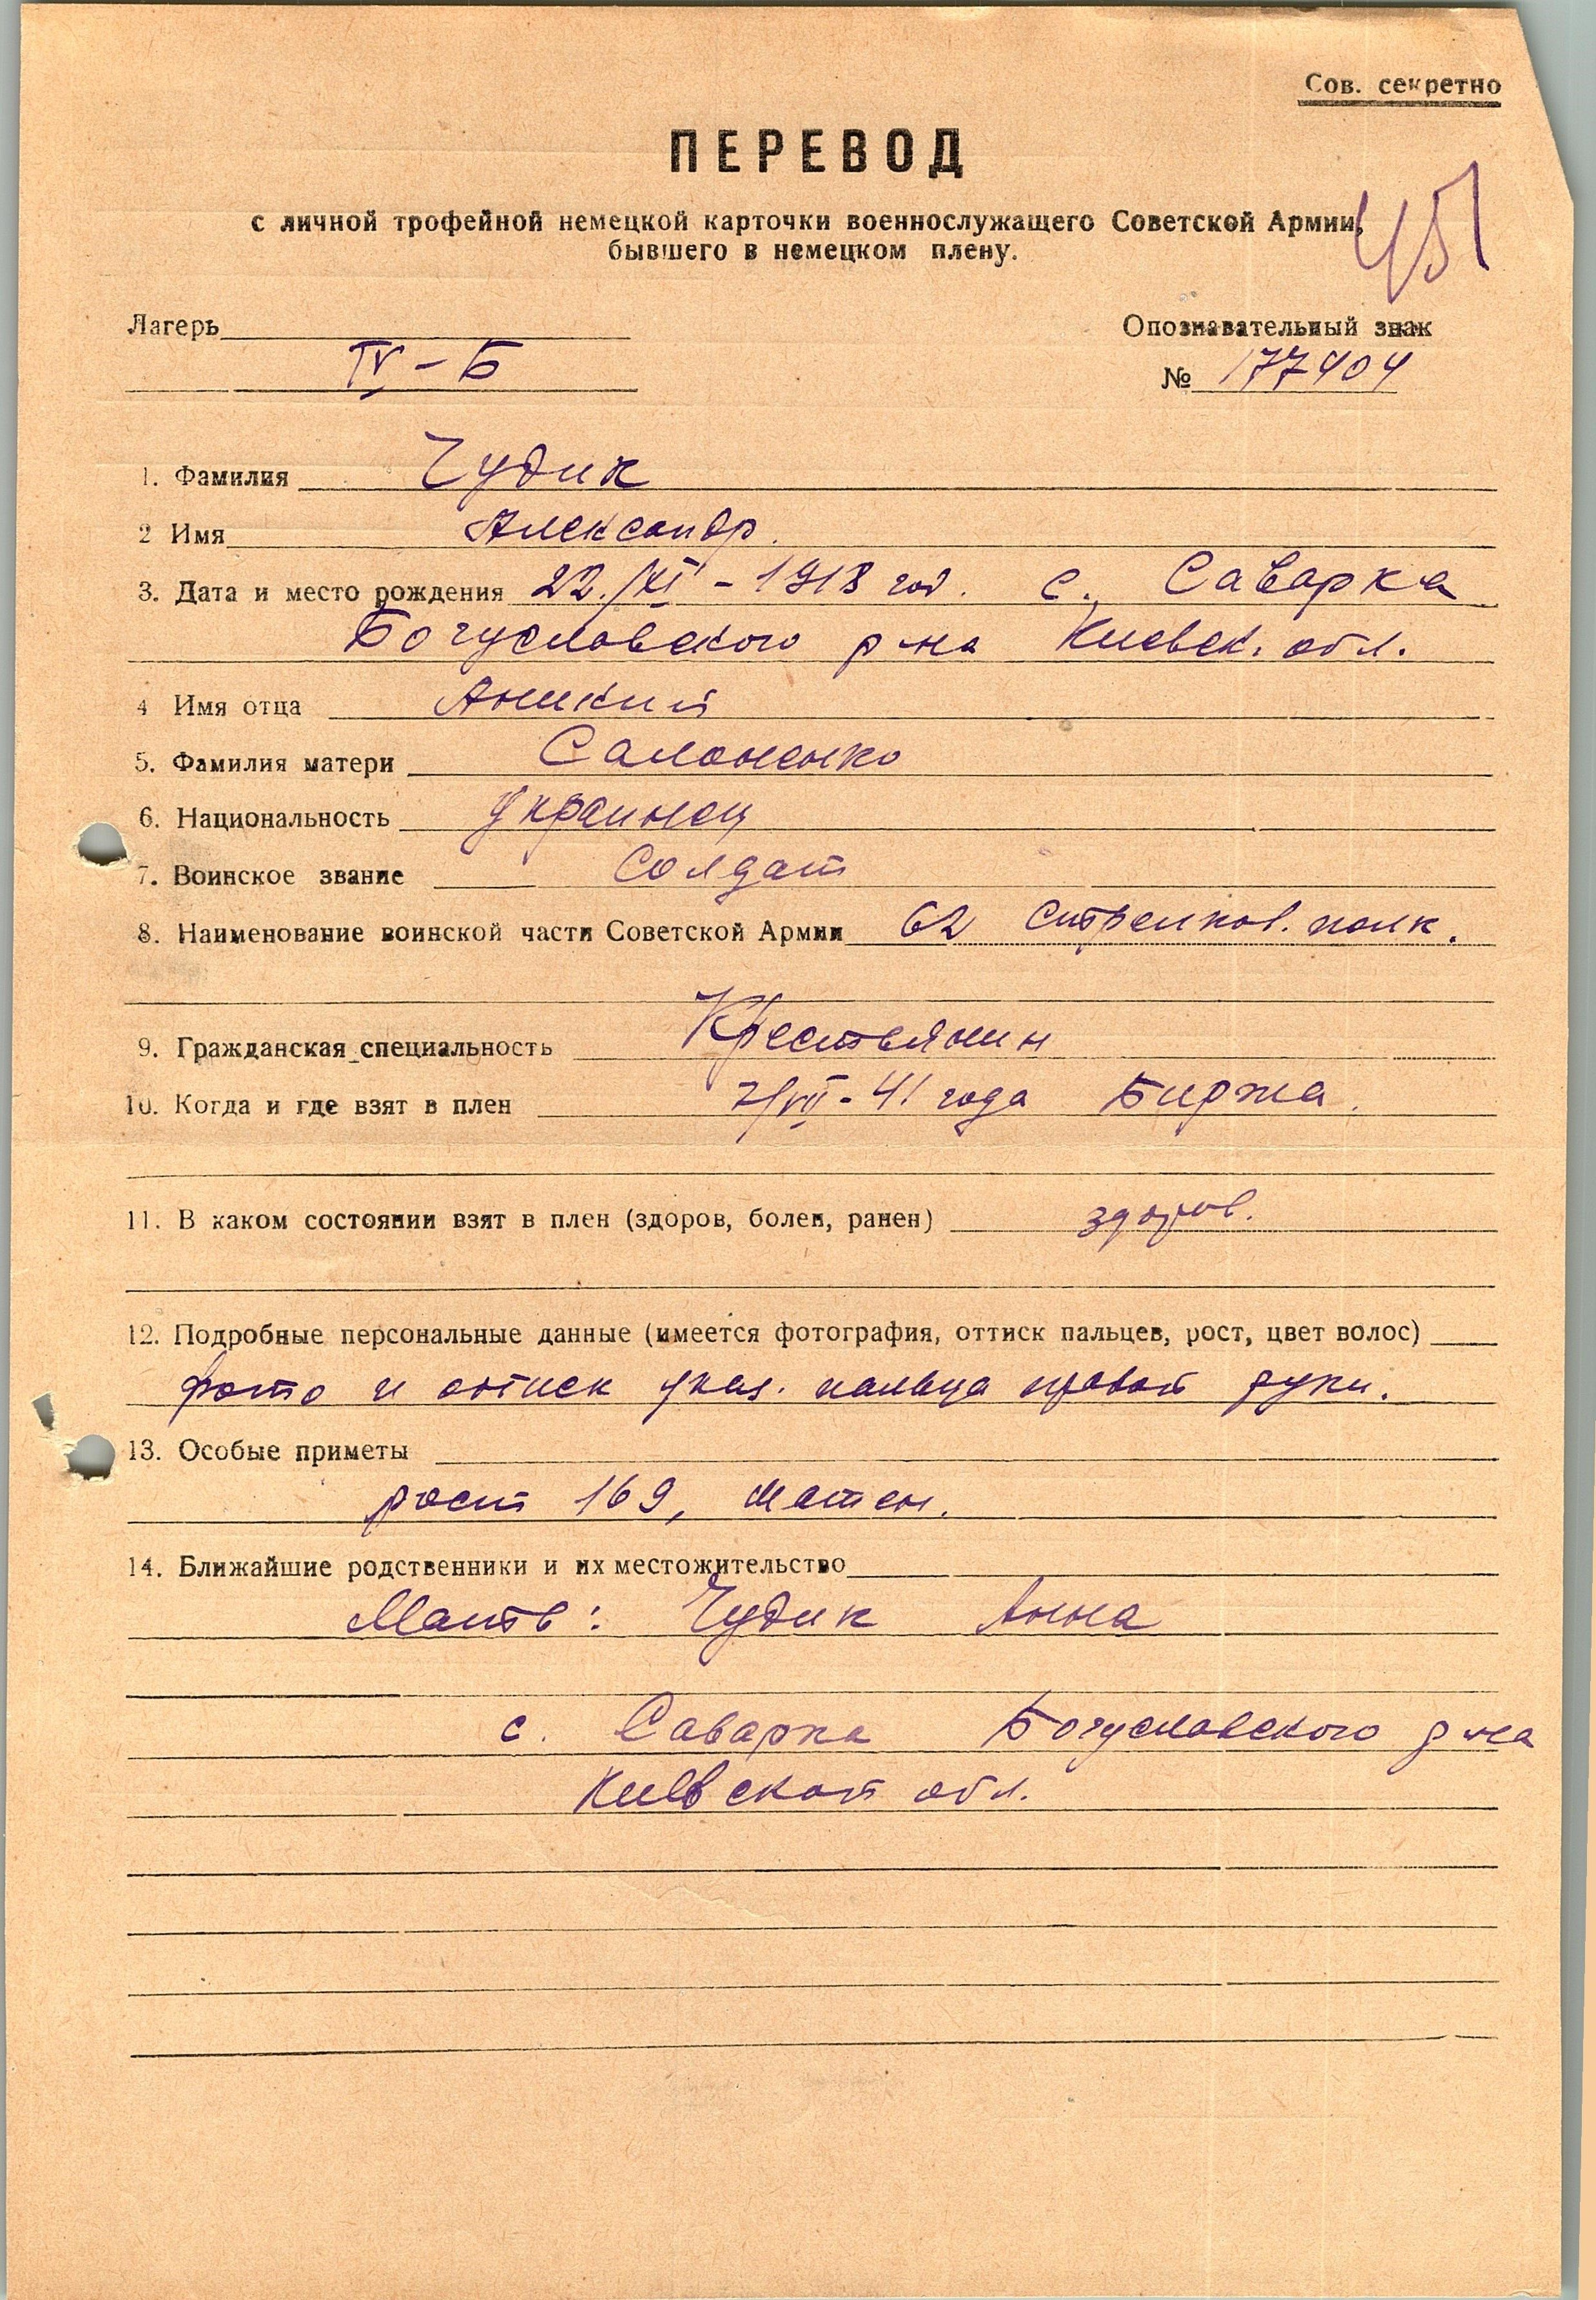 Сов. секретно
ПЕРЕВОД
с личной трофейной немецкой карточки военнослужащего Советской Армии,
бывшего в немецком плену.
451
Лагерь
IV-Б
Опознавательный знак
№ 177404
1. Фамилия Чудик
2 Имя Александр.
3. Дата и место рождения 22./XI-1918 год. с. Саварка
Богусловского р-на Киевск. обл.
4 Имя отца
5. Фамилия матери Салоненко
6. Национальность украинец
7. Воинское звание Солдат
8. Наименование воинской части Советской Армии 62 стрелков. полк.
9. Гражданская специальность Крестьянин
10. Когда и где взят в плен 7/VII-41 года Биржа.
11. В каком состоянии взят в плен (здоров, болен, ранен) здоров.
12. Подробные персональные данные (имеется фотография, оттиск пальцев, рост, цвет волос)
фото и оттиск указ. пальца правой руки.
13. Особые приметы
рост 169,
14. Ближайшие родственники и их местожительство
Мать: Чудик Анна
с. Саварка Богусловского р-на
Киевской обл.